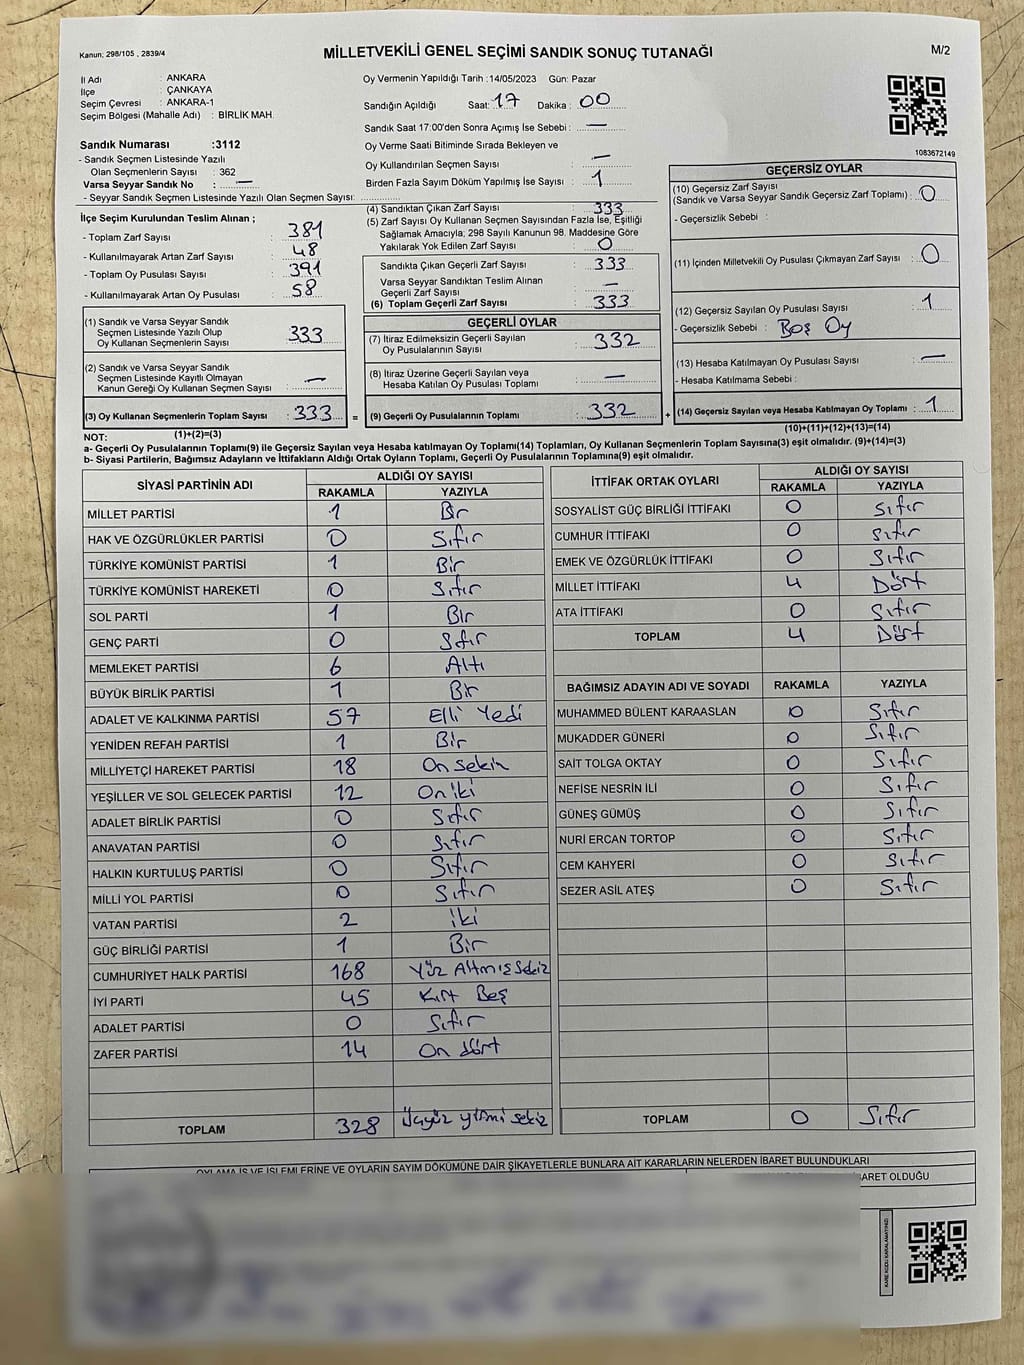 Kanun; 298/105 , 2839/4
MİLLETVEKİLİ GENEL SEÇİMİ SANDIK SONUÇ TUTANAĞI
M/2
İl Adı : ANKARA
İlçe : ÇANKAYA
Seçim Çevresi : ANKARA-1
Seçim Bölgesi (Mahalle Adı) : BİRLİK MAH.
Oy Vermenin Yapıldığı Tarih :14/05/2023 Gün: Pazar
Sandığın Açıldığı Saat: 17 Dakika : 00
Sandık Saat 17:00'den Sonra Açımış İse Sebebi : —
Oy Verme Saati Bitiminde Sırada Bekleyen ve
Oy Kullandırılan Seçmen Sayısı : —
Birden Fazla Sayım Döküm Yapılmış İse Sayısı : 1
1083672149
Sandık Numarası :3112
- Sandık Seçmen Listesinde Yazılı
Olan Seçmenlerin Sayısı : 362
Varsa Seyyar Sandık No : —
- Seyyar Sandık Seçmen Listesinde Yazılı Olan Seçmen Sayısı:
İlçe Seçim Kurulundan Teslim Alınan ;
- Toplam Zarf Sayısı : 381
- Kullanılmayarak Artan Zarf Sayısı : 48
- Toplam Oy Pusulası Sayısı : 391
- Kullanılmayarak Artan Oy Pusulası : 58
(1) Sandık ve Varsa Seyyar Sandık
Seçmen Listesinde Yazılı Olup
Oy Kullanan Seçmenlerin Sayısı : 333
(2) Sandık ve Varsa Seyyar Sandık
Seçmen Listesinde Kayıtlı Olmayan
Kanun Gereği Oy Kullanan Seçmen Sayısı : —
(3) Oy Kullanan Seçmenlerin Toplam Sayısı : 333 =
(1)+(2)=(3)
(4) Sandıktan Çıkan Zarf Sayısı : 333
(5) Zarf Sayısı Oy Kullanan Seçmen Sayısından Fazla İse, Eşitliği
Sağlamak Amacıyla; 298 Sayılı Kanunun 98. Maddesine Göre
Yakılarak Yok Edilen Zarf Sayısı : 0
Sandıkta Çıkan Geçerli Zarf Sayısı : 333
Varsa Seyyar Sandıktan Teslim Alınan
Geçerli Zarf Sayısı : —
(6) Toplam Geçerli Zarf Sayısı : 333
GEÇERLİ OYLAR
(7) İtiraz Edilmeksizin Geçerli Sayılan
Oy Pusulalarının Sayısı : 332
(8) İtiraz Üzerine Geçerli Sayılan veya
Hesaba Katılan Oy Pusulası Toplamı : —
(9) Geçerli Oy Pusulalarının Toplamı : 332 +
GEÇERSİZ OYLAR
(10) Geçersiz Zarf Sayısı
(Sandık ve Varsa Seyyar Sandık Geçersiz Zarf Toplamı) : 0
- Geçersizlik Sebebi :
(11) İçinden Milletvekili Oy Pusulası Çıkmayan Zarf Sayısı : 0
(12) Geçersiz Sayılan Oy Pusulası Sayısı : 1
- Geçersizlik Sebebi : Boş Oy
(13) Hesaba Katılmayan Oy Pusulası Sayısı : —
- Hesaba Katılmama Sebebi :
(14) Geçersiz Sayılan veya Hesaba Katılmayan Oy Toplamı : 1
(10)+(11)+(12)+(13)=(14)
NOT:
a- Geçerli Oy Pusulalarının Toplamı(9) ile Geçersiz Sayılan veya Hesaba katılmayan Oy Toplamı(14) Toplamları, Oy Kullanan Seçmenlerin Toplam Sayısına(3) eşit olmalıdır. (9)+(14)=(3)
b- Siyasi Partilerin, Bağımsız Adayların ve İttifakların Aldığı Ortak Oyların Toplamı, Geçerli Oy Pusulalarının Toplamına(9) eşit olmalıdır.
SİYASİ PARTİNİN ADI ALDIĞI OY SAYISI
RAKAMLA YAZIYLA
MİLLET PARTİSİ 1 Bir
HAK VE ÖZGÜRLÜKLER PARTİSİ 0 Sıfır
TÜRKİYE KOMÜNİST PARTİSİ 1 Bir
TÜRKİYE KOMÜNİST HAREKETİ 0 Sıfır
SOL PARTİ 1 Bir
GENÇ PARTİ 0 Sıfır
MEMLEKET PARTİSİ 6 Altı
BÜYÜK BİRLİK PARTİSİ 1 Bir
ADALET VE KALKINMA PARTİSİ 57 Elli Yedi
YENİDEN REFAH PARTİSİ 1 Bir
MİLLİYETÇİ HAREKET PARTİSİ 18 On sekiz
YEŞİLLER VE SOL GELECEK PARTİSİ 12 On iki
ADALET BİRLİK PARTİSİ 0 Sıfır
ANAVATAN PARTİSİ 0 Sıfır
HALKIN KURTULUŞ PARTİSİ 0 Sıfır
MİLLİ YOL PARTİSİ 0 Sıfır
VATAN PARTİSİ 2 iki
GÜÇ BİRLİĞİ PARTİSİ 1 Bir
CUMHURİYET HALK PARTİSİ 168 Yüz Altmış Sekiz
İYİ PARTİ 45 Kırk Beş
ADALET PARTİSİ 0 Sıfır
ZAFER PARTİSİ 14 On dört
TOPLAM 328 Üçyüz yirmi sekiz
İTTİFAK ORTAK OYLARI ALDIĞI OY SAYISI
RAKAMLA YAZIYLA
SOSYALİST GÜÇ BİRLİĞİ İTTİFAKI 0 Sıfır
CUMHUR İTTİFAKI 0 Sıfır
EMEK VE ÖZGÜRLÜK İTTİFAKI 0 Sıfır
MİLLET İTTİFAKI 4 Dört
ATA İTTİFAKI 0 Sıfır
TOPLAM 4 Dört
BAĞIMSIZ ADAYIN ADI VE SOYADI RAKAMLA YAZIYLA
MUHAMMED BÜLENT KARAASLAN 0 Sıfır
MUKADDER GÜNERİ 0 Sıfır
SAİT TOLGA OKTAY 0 Sıfır
NEFİSE NESRİN İLİ 0 Sıfır
GÜNEŞ GÜMÜŞ 0 Sıfır
NURİ ERCAN TORTOP 0 Sıfır
CEM KAHYERİ 0 Sıfır
SEZER ASİL ATEŞ 0 Sıfır
TOPLAM 0 Sıfır
OYLAMA İŞ VE İŞLEMLERİNE VE OYLARIN SAYIM DÖKÜMÜNE DAİR ŞİKAYETLERLE BUNLARA AİT KARARLARIN NELERDEN İBARET BULUNDUKLARI
İBARET OLDUĞU
KARE KODU KARALAMAYINIZ!